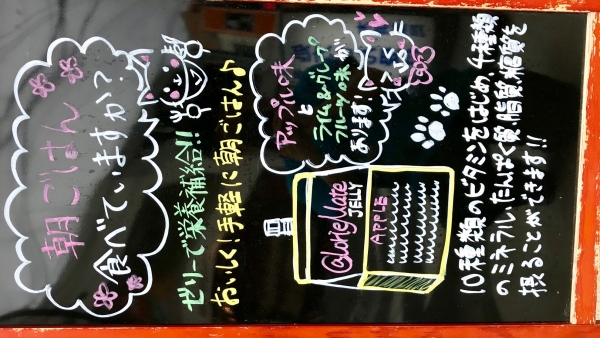 朝ごはん
食べていますか?
ゼリーで栄養補給!!
おいしく!手軽に朝ごはん♪
アップル味
と
ライム&グレープ
フルーツ味が
あります!
CalorieMate
JELLY
APPLE
10種類のビタミンをはじめ、4種類
のミネラル、たんぱく質、脂質、糖質を
摂ることができます!!